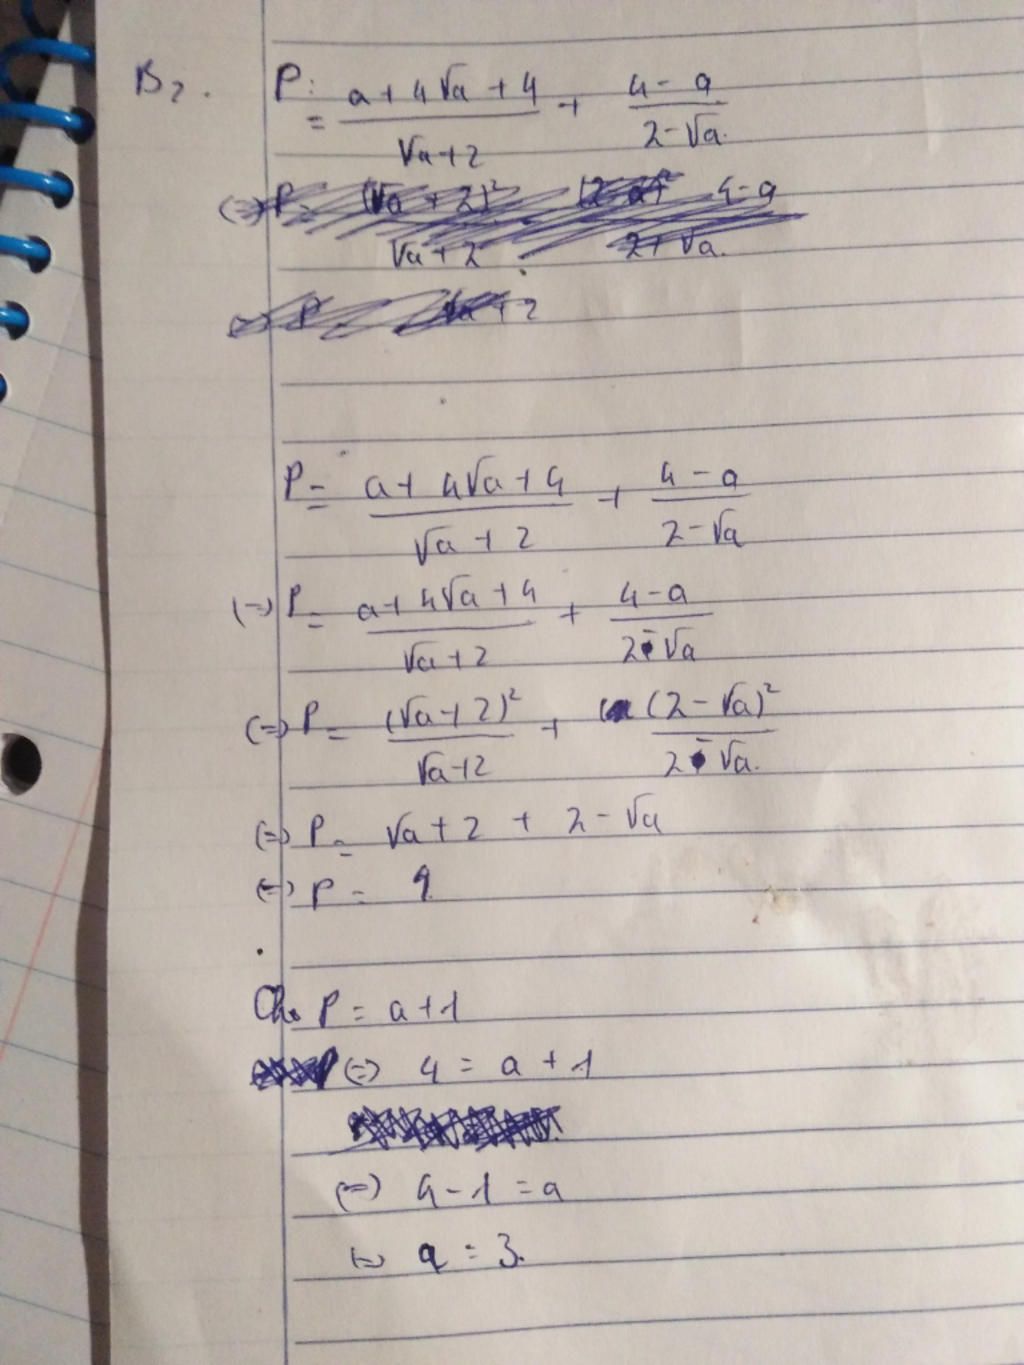 B2. P = (a + 4√a + 4)/(√a + 2) + (4 - a)/(2 - √a)
(=) P = (√a + 2)²/(√a + 2) (4 - a)/(2 + √a)
(=) P = √a + 2
P = (a + 4√a + 4)/(√a + 2) + (4 - a)/(2 - √a)
(=) P = (a + 4√a + 4)/(√a + 2) + (4 - a)/(2 - √a)
(=) P = (√a + 2)²/(√a + 2) + (2 - √a)²/(2 - √a)
(=) P = √a + 2 + 2 - √a
(=) P = 4
Cho P = a + 1
(=) 4 = a + 1
(=) 4 - 1 = a
(=) a = 3.